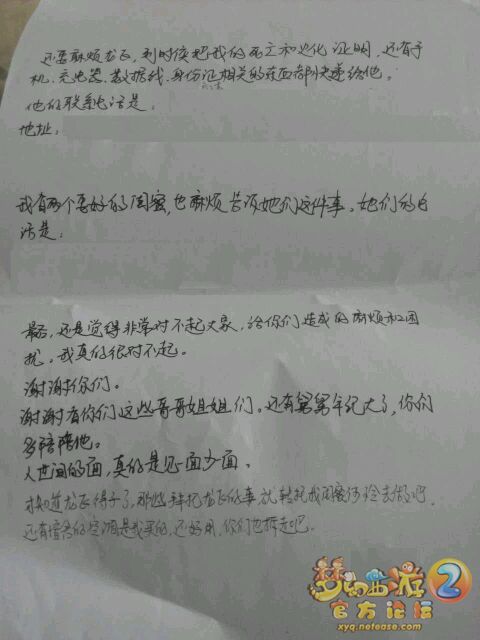 还要麻烦龙飞,到时候把我的死亡和火化证明,还有手
机、充电器、数据线、身份证相关的东西都快递给他。
他的联系电话是:
地址:
我有两个要好的闺蜜,也麻烦告诉她们这件事。她们的电
话是:
最后,还是觉得非常对不起大家,给你们造成的麻烦和困
扰。我真的很对不起。
谢谢你们。
谢谢有你们这些哥哥姐姐们。还有舅舅年纪大了,你们
多陪陪他。
人世间的面,真的是见一面少一面。
才知道龙飞得子了,那些拜托龙飞的事就转托我闺蜜去做吧。
还有宿舍的空调是我买的,还好用,你们也拆走吧。
梦幻西游2
官方论坛
xyq.netease.com